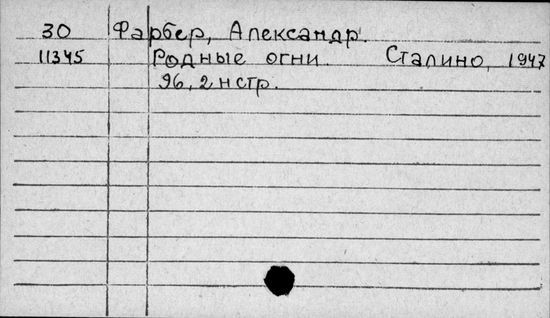 30 Фарбер, Александр.
11345 Родные огни. Сталино, 1947
96, 2 н стр.